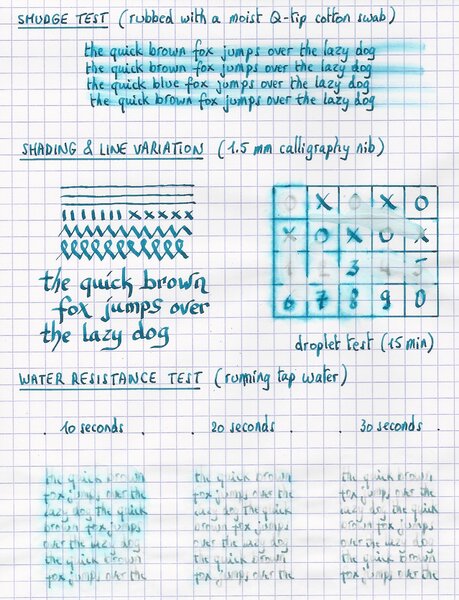 SMUDGE TEST (rubbed with a moist Q-tip cotton swab)
the quick brown fox jumps over the lazy dog
the quick brown fox jumps over the lazy dog
the quick blue fox jumps over the lazy dog
the quick brown fox jumps over the lazy dog
SHADING & LINE VARIATION (1.5 mm calligraphy nib)
the quick brown
fox jumps over
the lazy dog
O X O X O
X O X O X
1 2 3 4 5
6 7 8 9 0
droplet test (15 min)
WATER RESISTANCE TEST (running tap water)
10 seconds
20 seconds
30 seconds
the quick brown
fox jumps over the
lazy dog the quick
brown fox jumps
over the lazy dog
the quick brown
fox jumps over the
the quick brown
fox jumps over the
lazy dog the quick
brown fox jumps
over the lazy dog
the quick brown
fox jumps over the
the quick brown
fox jumps over the
lazy dog the quick
brown fox jumps
over the lazy dog
the quick brown
fox jumps over the